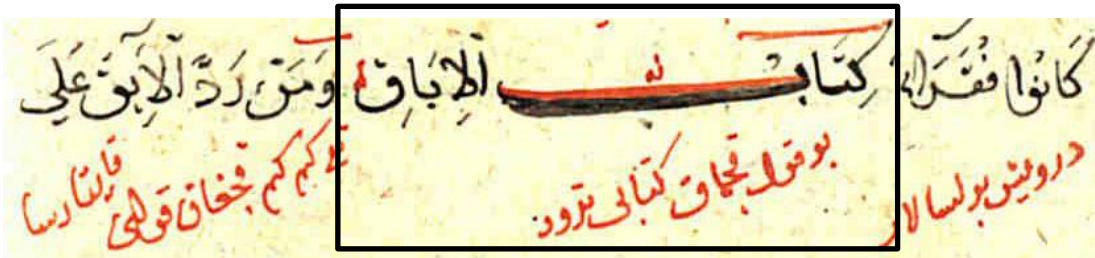 كَانُوا فُقَرَاءَ كِتَابُ الإِبَاقِ وَمَنْ رَدَّ الآبِقَ عَلَى
درويش بولسالار بو قول قجماق كتابى ترور كم قجغان قولنى قايتارسا